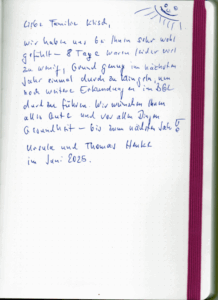 Liebe Familie Kusd,
wir haben uns bei Ihnen sehr wohl
gefühlt – 8 Tage waren leider viel
zu wenig, Grund genug im nächsten
Jahr einmal durchzuklingeln, um
noch weitere Erkundungen im
durchzuführen. Wir wünschen Ihnen
alles Gute und vor allen Dingen
Gesundheit – bis zum nächsten Jahr
Ursula und Thomas
im Juni 2025.